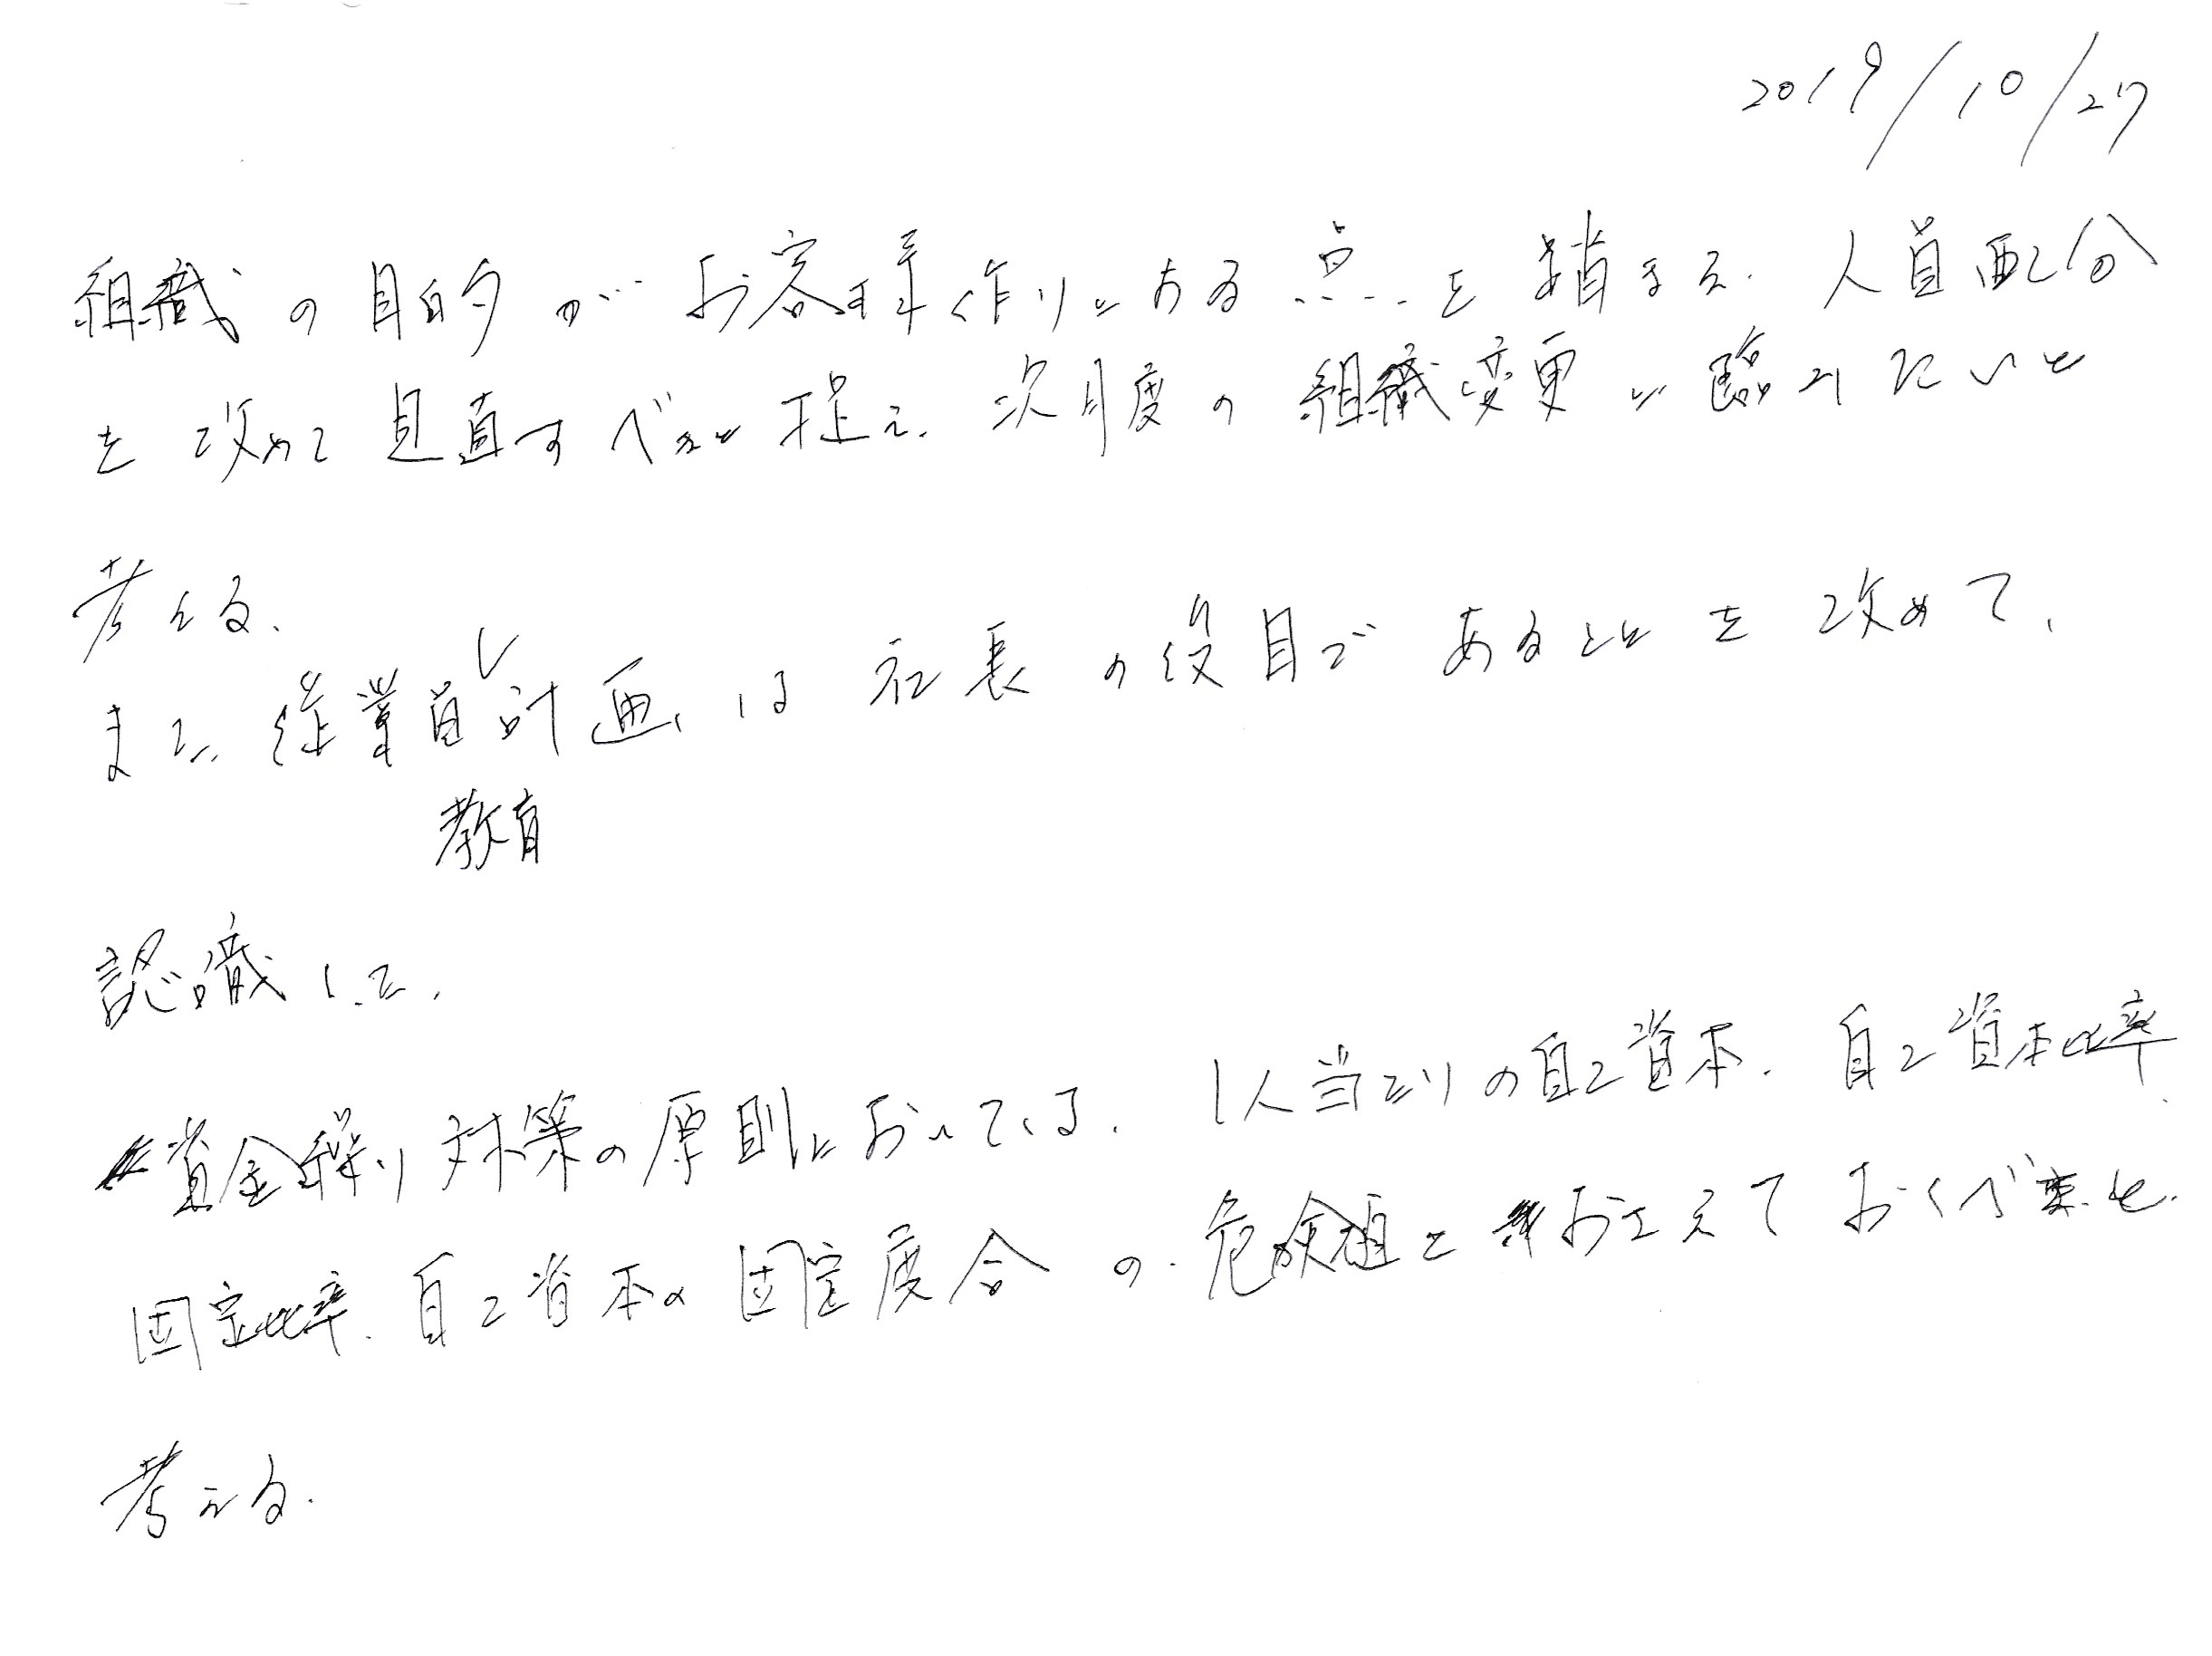 2019/10/27
組織の目的がお客様作りにある点を踏まえ、人員配分
を改めて見直すべきと捉え、次月度の組織変更に臨みたいと
考える。
また、従業員教育計画は社長の役目であることを改めて、
認識した。
資金繰り対策の原則においては、1人当たりの自己資本、自己資本比率、
固定比率、自己資本の固定度合の危険値をおさえておくべきと、
考える。